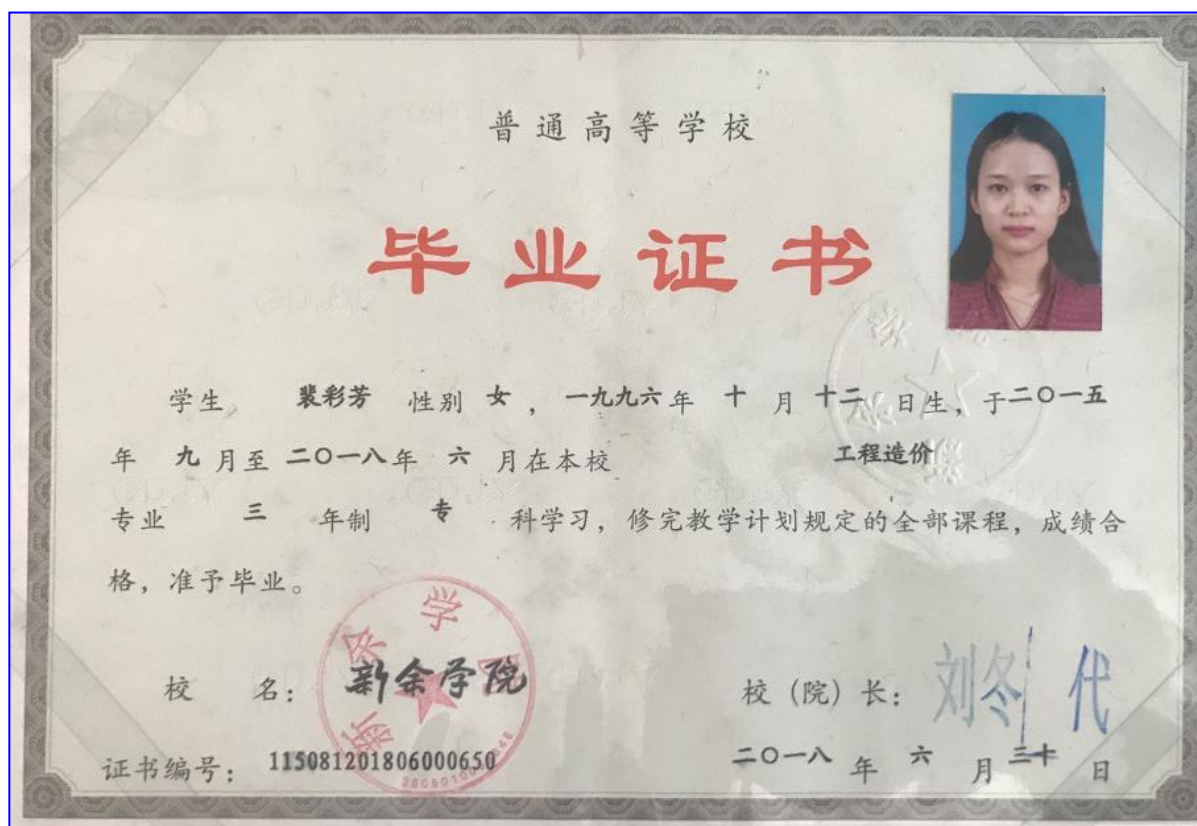 普通高等学校
毕业证书
学生 裴彩芳 性别 女，一九九六年 十 月 十二 日生，于二〇一五
年 九 月至 二〇一八年 六 月在本校 工程造价
专业 三 年制 专 科学习，修完教学计划规定的全部课程，成绩合
格，准予毕业。
校 名： 新余学院
校（院）长： 刘冬 代
证书编号： 115081201806000650
二〇一八 年 六 月 三十 日
新余学院